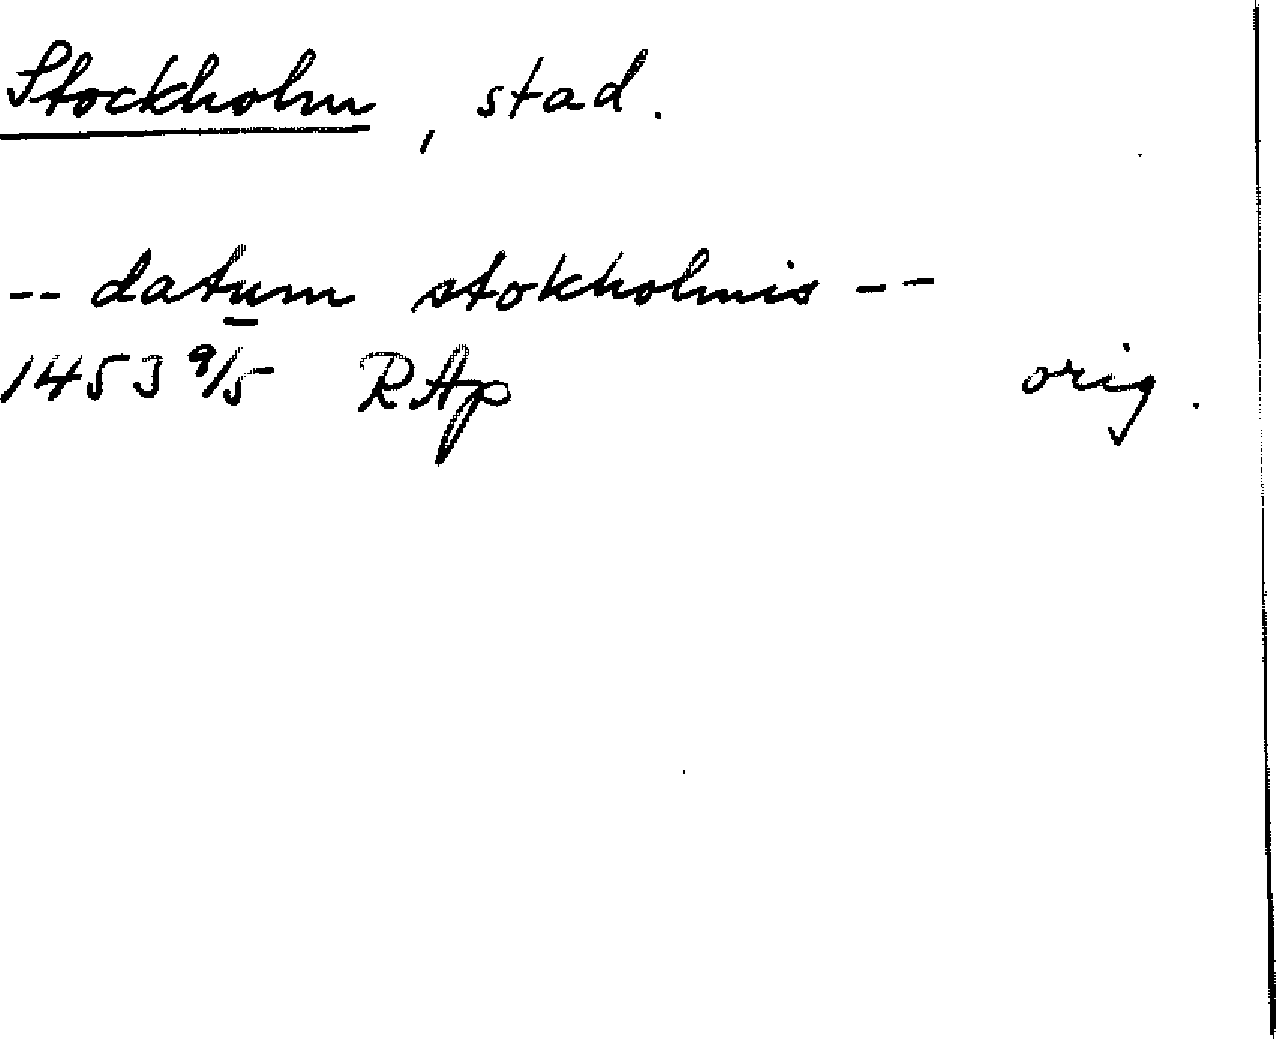 Stockholm, stad.
-- datum stokholmis --
1453 9/5 RAp orig.